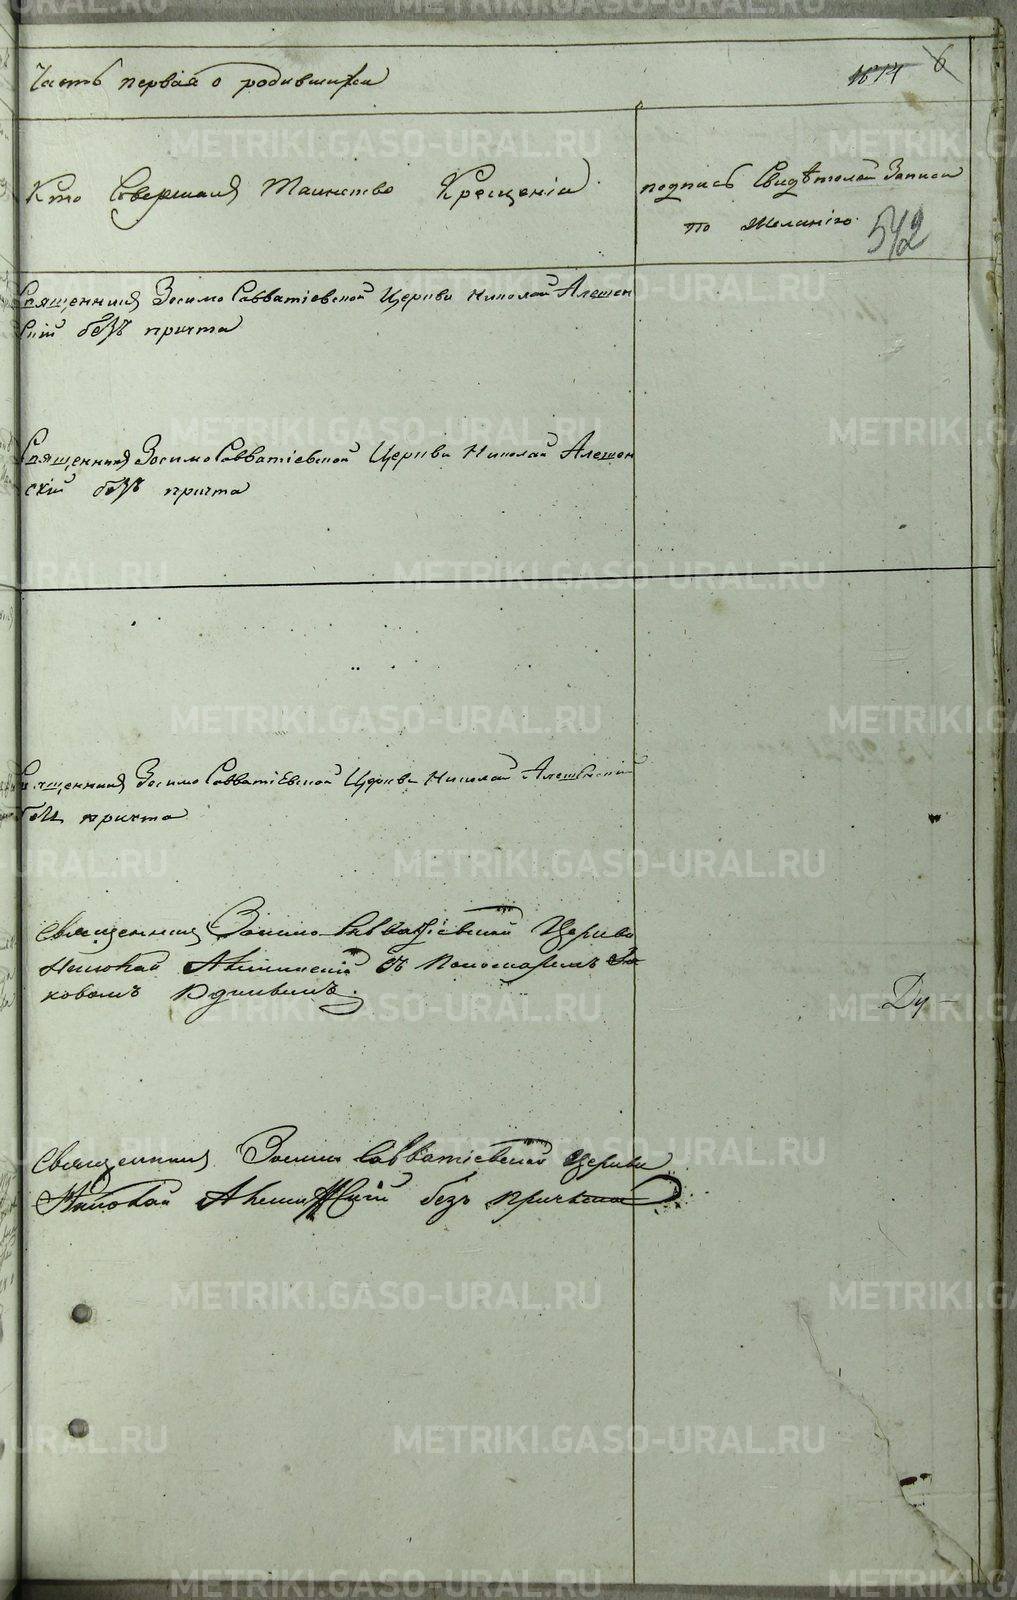 Часть первая о родившихся
6
Кто Совершалъ Таинство Крещенія
подпись Свидѣтелей Записи
по Желанію
542
Священникъ Зосимо Савватіевской Церкви Николай
скій безъ причта
Священникъ Зосимо Савватіевской Церкви Николай
скій безъ причта
Священникъ Зосимо Савватіевской Церкви Николай
безъ причта
Священникъ Зосимо Савватіевской Церкви
Николай съ Пономаремъ
ковомъ
Ду-
Священникъ Зосимо Савватіевской Церкви
Николай безъ Причта
METRIKI.GASO-URAL.RU